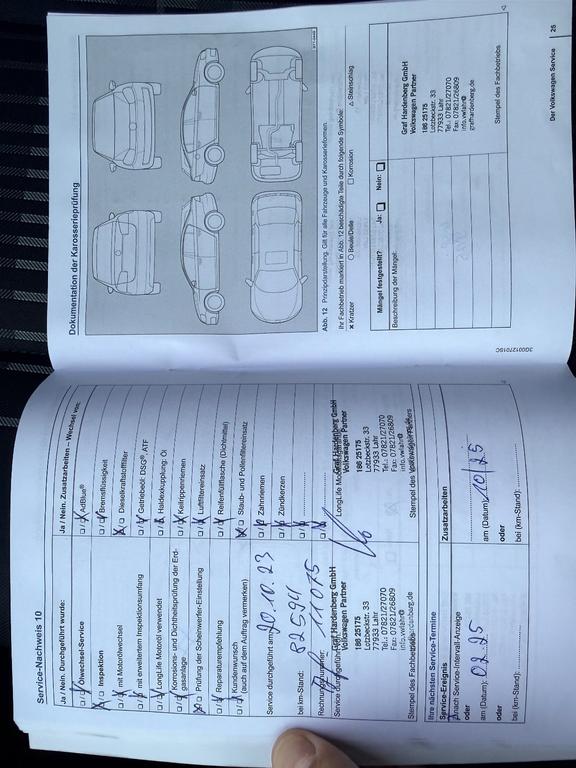 Service-Nachweis 10
Ja / Nein. Durchgeführt wurde:
Ölwechsel-Service
Inspektion
mit Motorölwechsel
mit erweitertem Inspektionsumfang
LongLife Motoröl verwendet
Korrosions- und Dichtheitsprüfung der Erd-
gasanlage
Prüfung der Scheinwerfer-Einstellung
Reparaturempfehlung
Kundenwunsch
(auch auf dem Auftrag vermerken)
Service durchgeführt am: 20.10.23
bei km-Stand: 82594
Rechnungsnummer: 11075
Service durchgeführt
Graf Hardenberg GmbH
Volkswagen Partner
186 25175
Lotzbeckstr. 33
77933 Lahr
Tel.: 07821/27070
Fax: 07821/26809
Stempel des Fachbetriebs
Ja / Nein. Zusatzarbeiten – Wechsel von:
AdBlue®
Bremsflüssigkeit
Dieselkraftstofffilter
Getriebeöl: DSG®, ATF
Haldexkupplung: Öl
Keilrippenriemen
Luftfiltereinsatz
Reifenfüllflasche (Dichtmittel)
Staub- und Pollenfiltereinsatz
Zahnriemen
Zündkerzen
LongLife
Graf Hardenberg GmbH
Volkswagen Partner
186 25175
Lotzbeckstr. 33
77933 Lahr
Tel.: 07821/27070
Fax: 07821/26809
Stempel des
Ihre nächsten Service-Termine
Service-Ereignis
nach Service-Intervall-Anzeige
oder
am (Datum): 02.25
oder
bei (km-Stand):
Zusatzarbeiten
am (Datum): 10/25
oder
bei (km-Stand):
Dokumentation der Karosserieprüfung
Abb. 12 Prinzipdarstellung. Gilt für alle Fahrzeuge und Karosserieformen.
Ihr Fachbetrieb markiert in Abb. 12 beschädigte Teile durch folgende Symbole:
× Kratzer ○ Beule/Delle □ Korrosion △ Steinschlag
Mängel festgestellt? Ja: Nein:
Beschreibung der Mängel:
Graf Hardenberg GmbH
Volkswagen Partner
186 25175
Lotzbeckstr. 33
77933 Lahr
Tel.: 07821/27070
Fax: 07821/26809
info.vwlahr@
grafhardenberg.de
Stempel des Fachbetriebs
3G0012701SC
Der Volkswagen Service 25